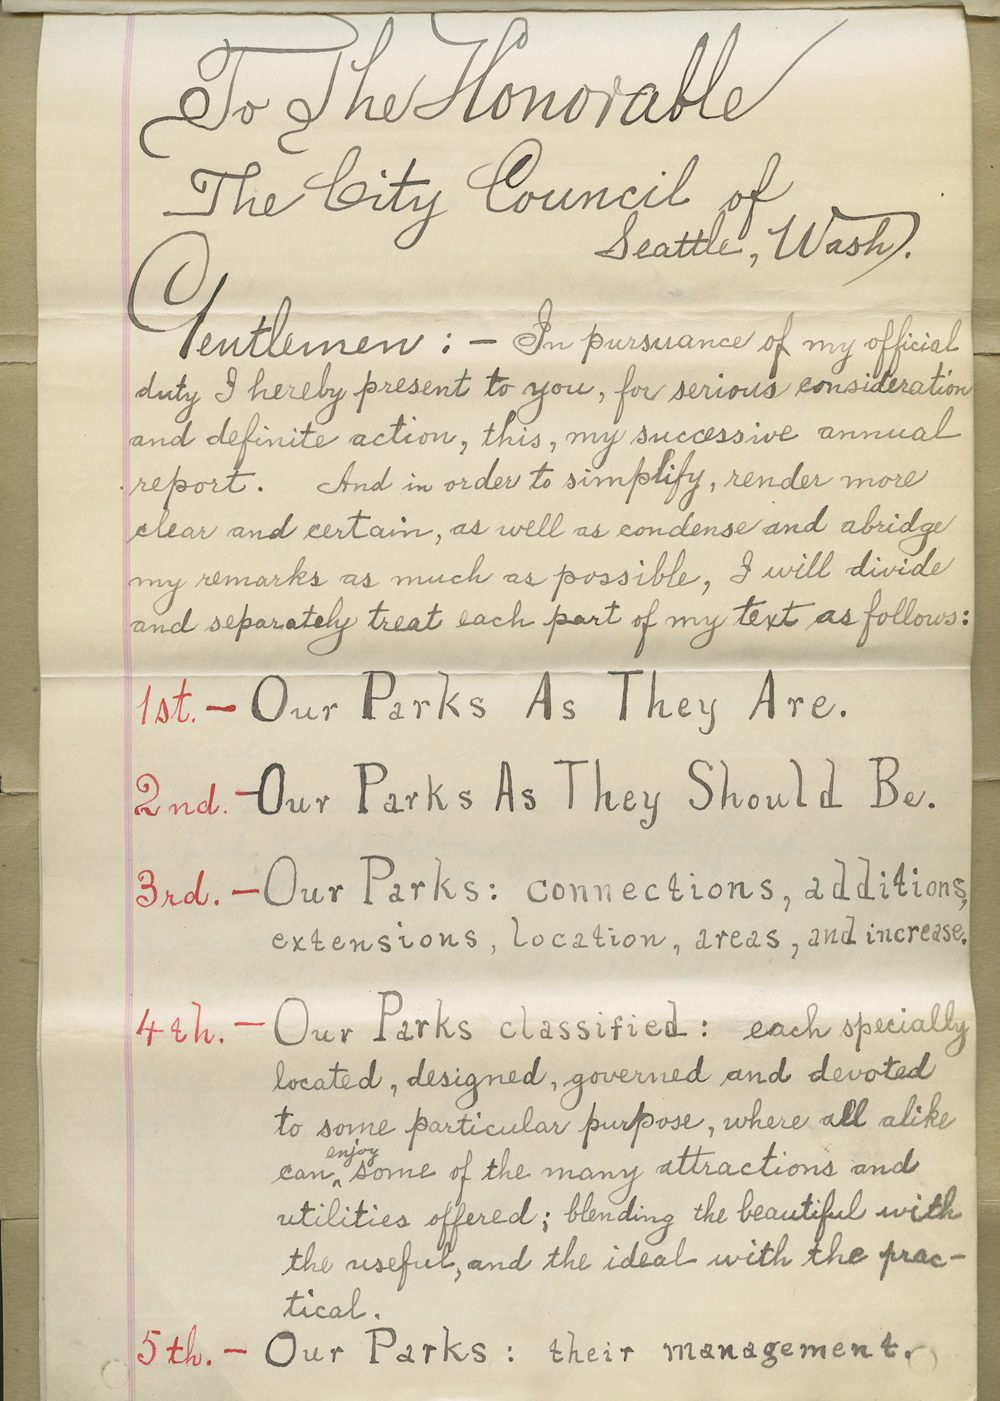 To The Honorable
The City Council of
Seattle, Wash).
Gentlemen: — In pursuance of my official
duty I hereby present to you, for serious consideration
and definite action, this, my successive annual
report. And in order to simplify, render more
clear and certain, as well as condense and abridge
my remarks as much as possible, I will divide
and separately treat each part of my text as follows:
1st. — Our Parks As They Are.
2nd. — Our Parks As They Should Be.
3rd. — Our Parks: connections, additions,
extensions, location, areas, and increase.
4th. — Our Parks classified: each specially
located, designed, governed and devoted
to some particular purpose, where all alike
can enjoy some of the many attractions and
utilities offered; blending the beautiful with
the useful, and the ideal with the prac-
tical.
5th. — Our Parks: their management.